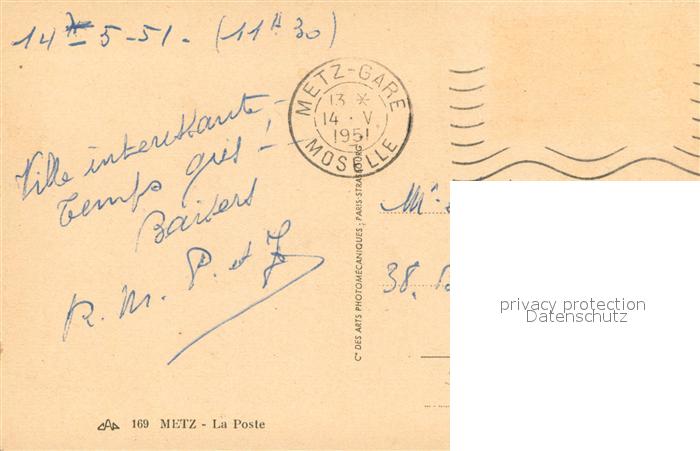 14 - 5-51 - (11H30)
METZ-GARE
13 *
14 · V
1951
MOSELLE
Ville intéressante -
Temps gris ! -
Baisers
R. M. P. et J
Mr
38.
Cie DES ARTS PHOTOMÉCANIQUES ; PARIS-STRASBOURG
privacy protection
Datenschutz
CAP 169 METZ - La Poste